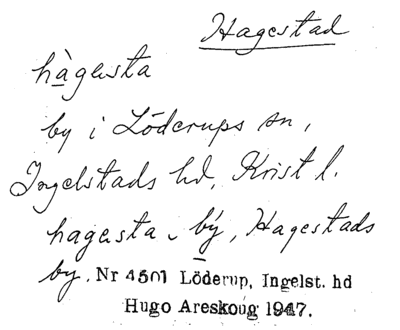 Hagestad
hàgesta
by i Löderups sn,
Ingelstads hd, Krist l.
hagesta ˬ bý, Hagestads
by. Nr 4501 Löderup, Ingelst. hd
Hugo Areskoug 1947.